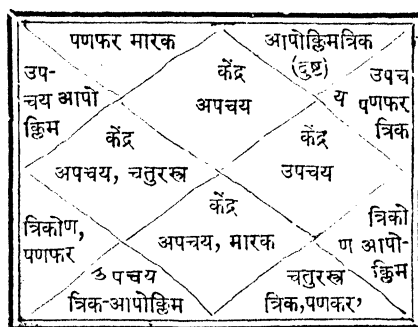 पणफर मारक
आपोक्लिमत्रिक
(दुष्ट)
उप-
चय आपो
क्लिम
केंद्र
अपचय
उपच
य पणफर
त्रिक
केंद्र
अपचय, चतुरस्त्र
केंद्र
उपचय
केंद्र
अपचय, मारक
त्रिकोण,
पणफर
त्रिको
ण आपो-
क्लिम
उपचय
त्रिक-आपोक्लिम
चतुरस्त्र
त्रिक,पणकर,